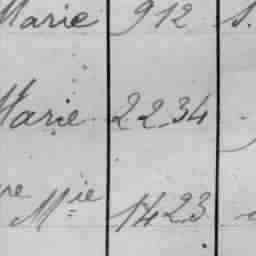 Marie 912 S.
Marie 2234
ve Mie 1423